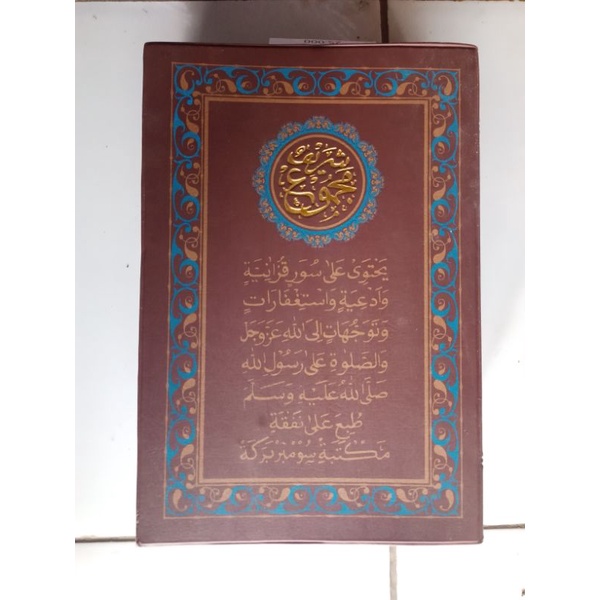 مجموع شريف
يَحْتَوِى عَلَى سُوَرٍ قُرْاٰنِيَّةٍ
وَاَدْعِيَةٍ وَاسْتِغْفَارَاتٍ
وَتَوَجُّهَاتٍ اِلَى اللهِ عَزَّ وَجَلَّ
وَالصَّلٰوةِ عَلَى رَسُوْلِ اللهِ
صَلَّى اللهُ عَلَيْهِ وَسَلَّمَ
طُبِعَ عَلَى نَفَقَةِ
مَكْتَبَةْ سُوْمْبَرْ بَرَكَةْ